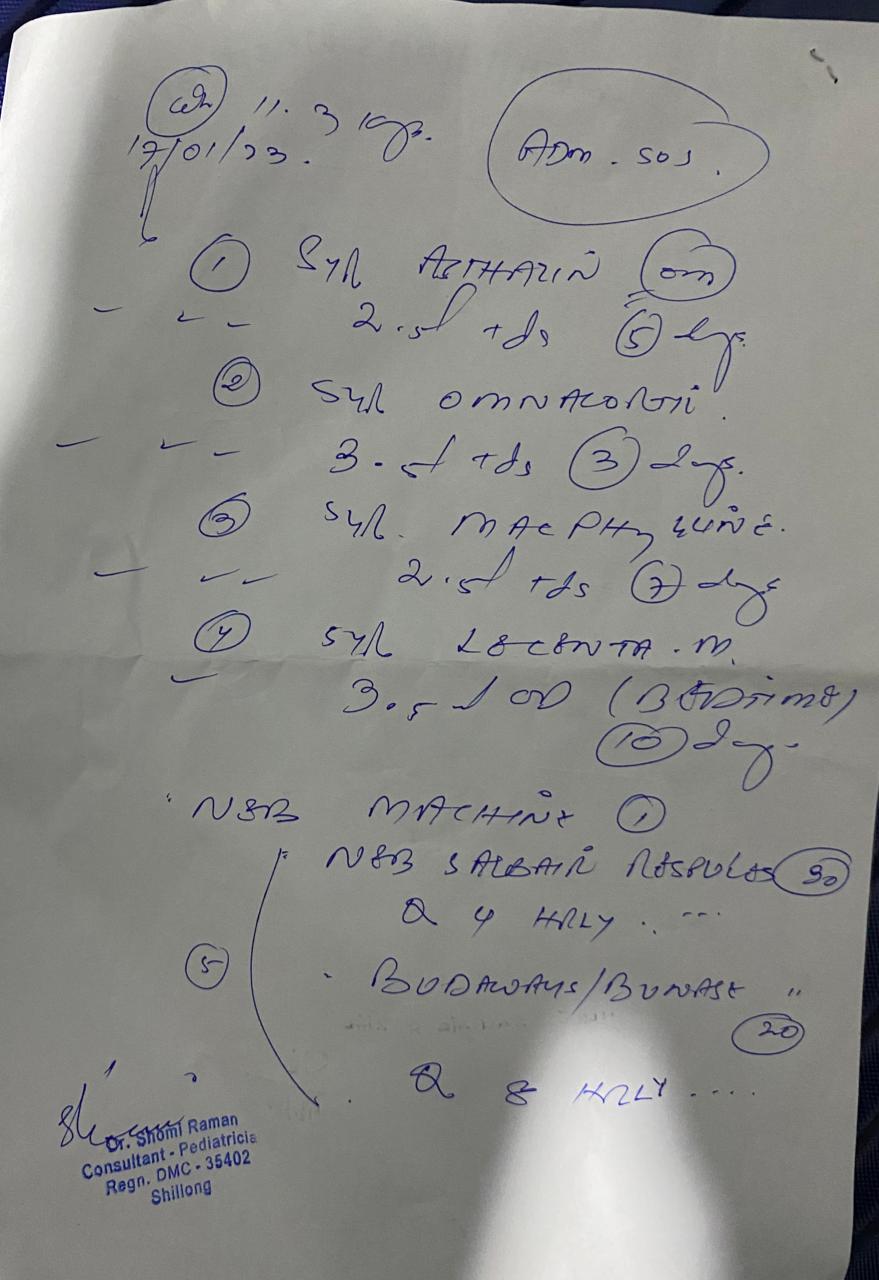 11.3 kgs.
17/01/23.
ADM. SOS.
① SYR ASTHALIN
2.5ml tds ⑤ days.
② SYR OMNACORTIL.
3.5ml tds ③ days.
③ SYR.
2.5ml tds ⑦ days
④ SYR LECENTA.M.
3.5ml OD (BEDTIME)
⑩ days.
NEB MACHINE ①
NEB SALBAIR RESPULES
Q 4 HRLY ...
⑤
BUDAWAYS/BUNASE "
⑳
Q 8 HRLY ....
Dr. Shomi Raman
Consultant - Pediatricia
Regn. DMC - 35402
Shillong